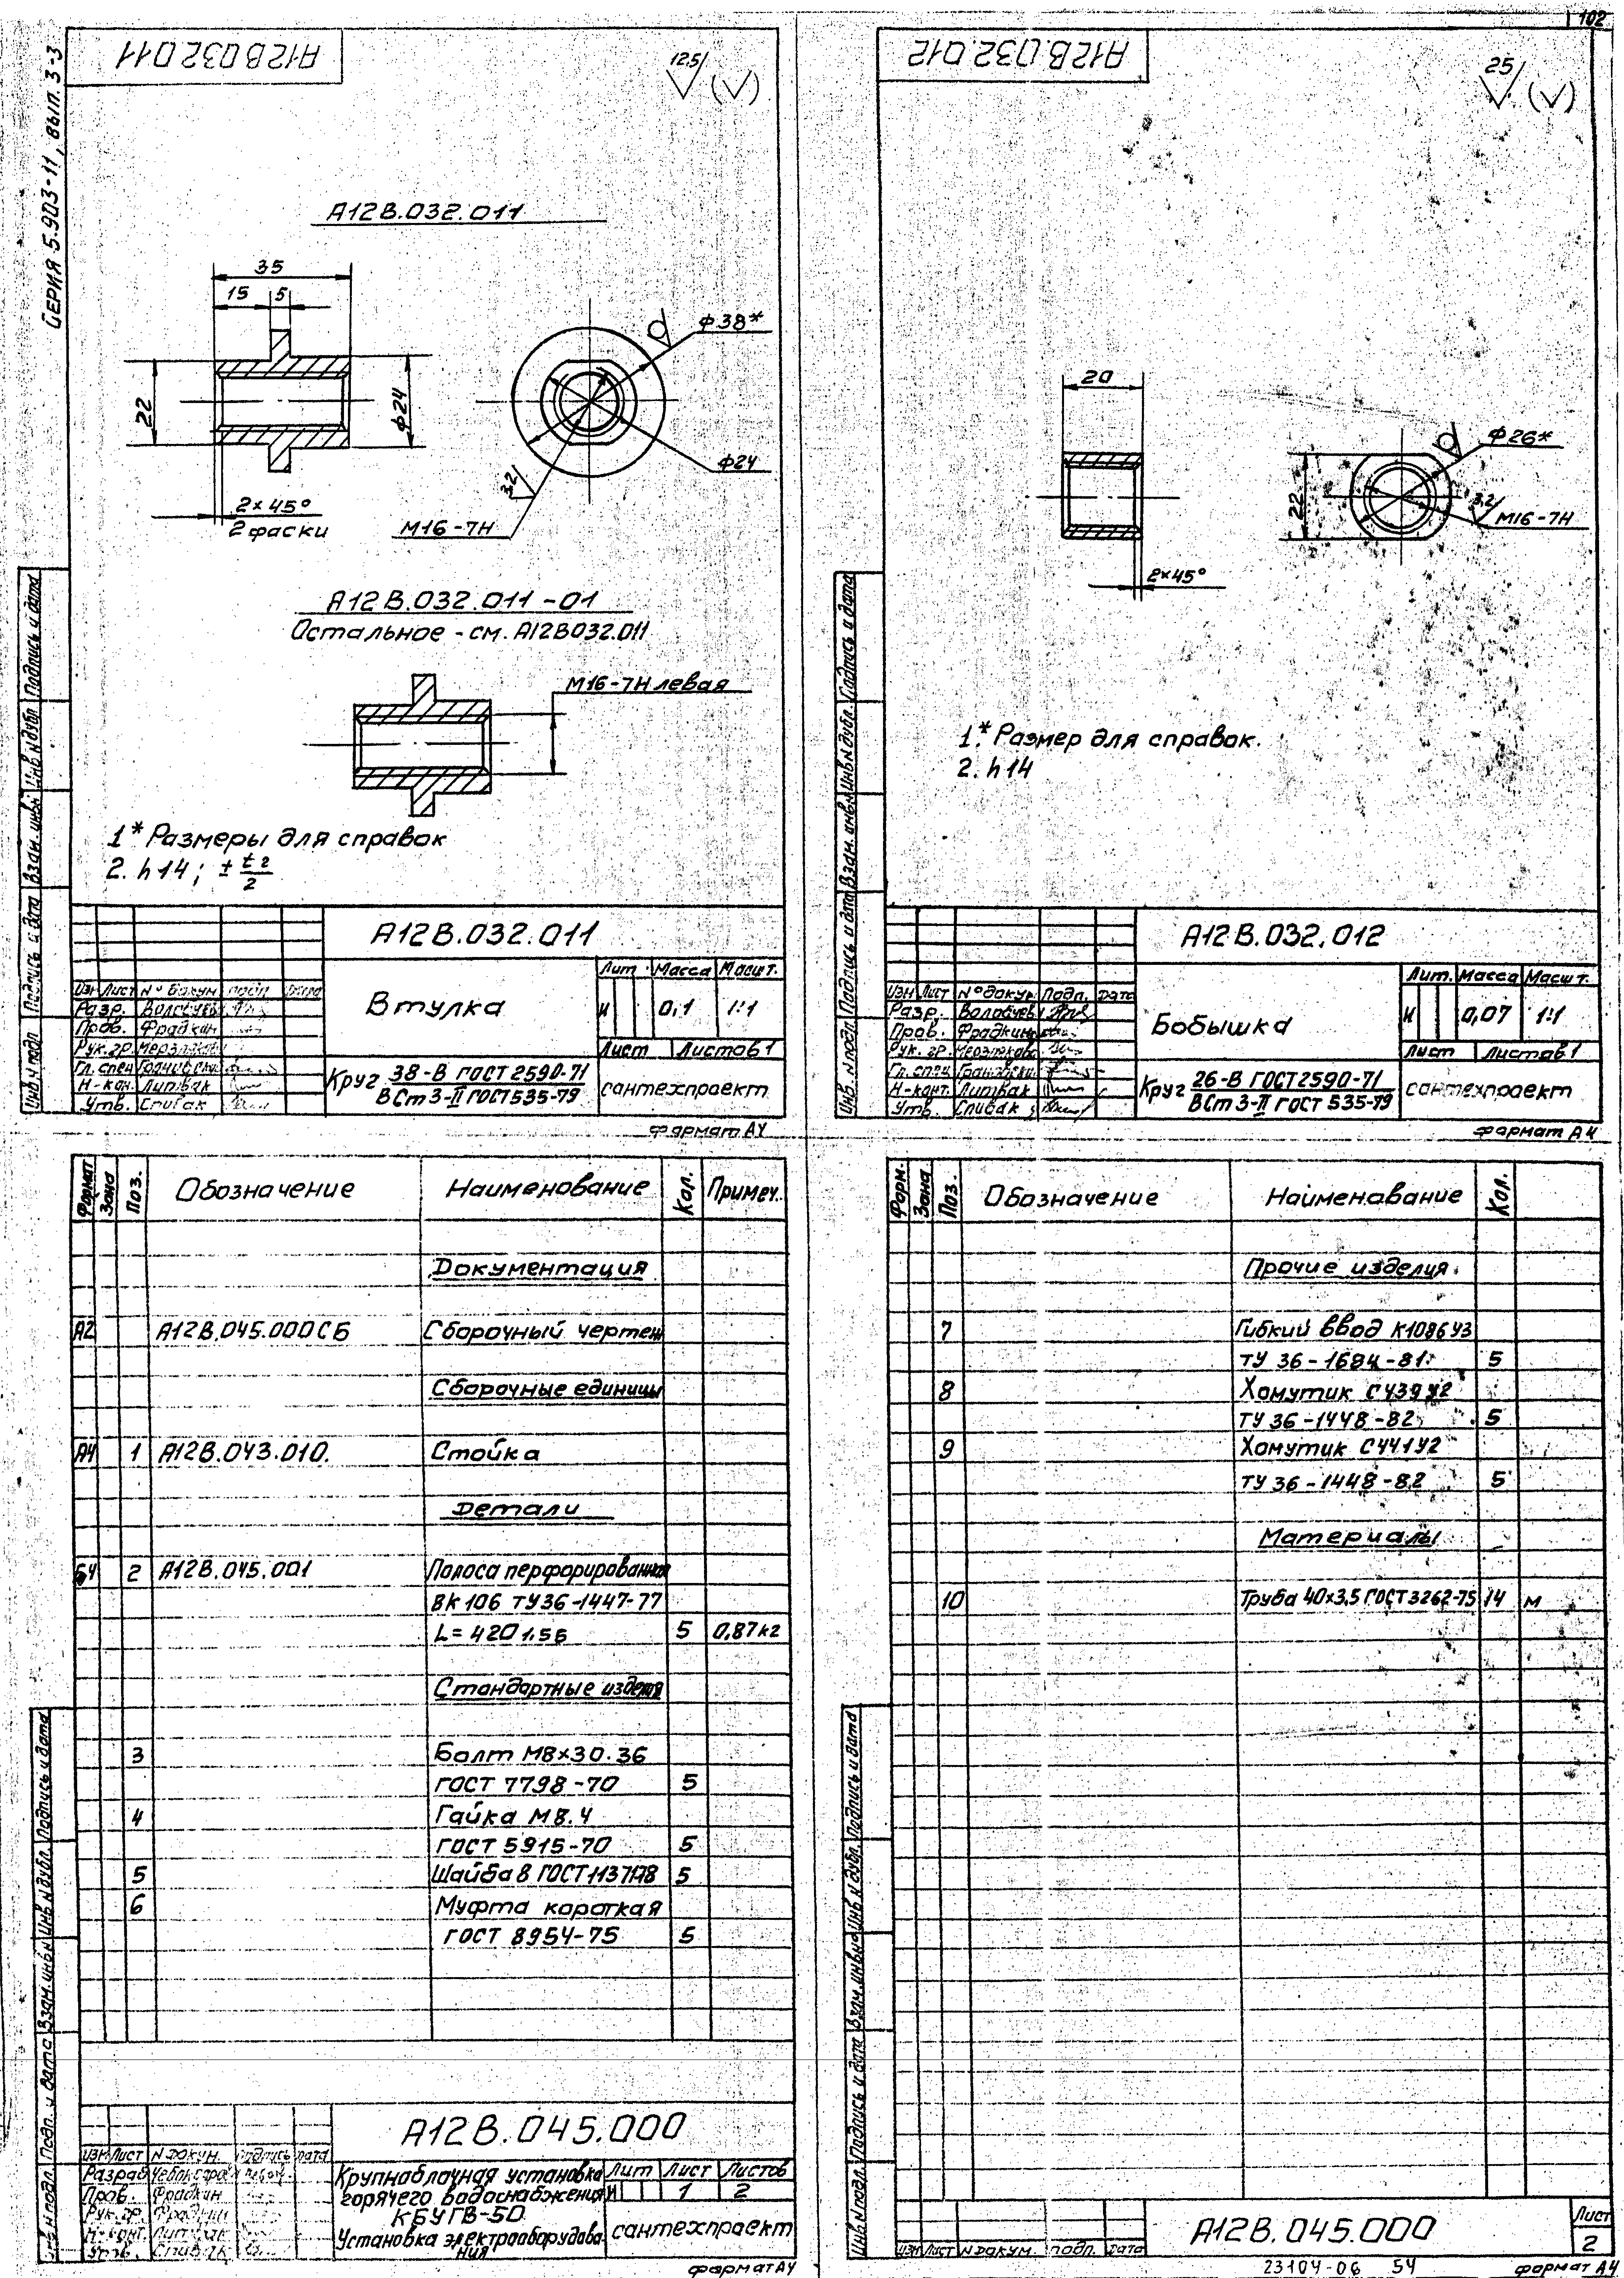 102
СЕРИЯ 5.903-11, вып. 3-3
А12В.032.011
125
А12В.032.011
35
15
5
22
ф24
ф38*
ф24
3,2
2×45°
2 фаски
М16-7Н
А12В.032.011-01
Остальное - см. А12В032.011
М16-7Н левая
1* Размеры для справок
2. h14; ± t2/2
А12В.032.011
Втулка
Лит. Масса Масшт.
И 0,1 1:1
Лист Листов 1
Изм Лист № докум подп Дата
Разр.
Пров. Фрадкин
Рук. гр.
Гл. спец
Н-кон. Литвак
Утв. Спивак
Круг 38-В ГОСТ 2590-71
ВСт3-II ГОСТ 535-79
сантехпроект
формат А4
Инв. № подл. Подпись и дата Взам. инв. № Инв. № дубл. Подпись и дата
А12В.032.012
25
20
22
ф26*
3,2
М16-7Н
2×45°
1.* Размер для справок.
2. h14
А12В.032.012
Бобышка
Лит. Масса Масшт.
И 0,07 1:1
Лист Листов 1
Изм Лист № докум Подп. Дата
Разр.
Пров. Фрадкин
Рук. гр.
Гл. спец
Н-конт. Литвак
Утв. Спивак
Круг 26-В ГОСТ 2590-71
ВСт3-II ГОСТ 535-79
сантехпроект
формат А4
Инв. № подл. Подпись и дата Взам. инв. № Инв. № дубл. Подпись и дата
Формат Зона Поз. Обозначение Наименование Кол. Примеч.
Документация
А2 А12В.045.000СБ Сборочный чертеж
Сборочные единицы
А4 1 А12В.043.010. Стойка
Детали
Б4 2 А12В.045.001 Полоса перфорированная
ВК 106 ТУ36-1447-77
L=420 5 0,87кг
Стандартные изделия
3 Болт М8×30.36
ГОСТ 7798-70 5
4 Гайка М8.4
ГОСТ 5915-70 5
5 Шайба 8 ГОСТ 11371-78 5
6 Муфта короткая
ГОСТ 8954-75 5
А12В.045.000
Изм Лист № докум. Подпись Дата
Разраб
Пров. Фрадкин
Рук. гр. Фрадкин
Н-конт. Литвак
Утв. Спивак
Крупноблочная установка
горячего водоснабжения
КБУГВ-50
Установка электрооборудова-
ния
Лит Лист Листов
И 1 2
сантехпроект
формат А4
Инв. № подл. Подп. и дата Взам. инв. № Инв. № дубл. Подпись и дата
Форм. Зона Поз. Обозначение Наименование Кол.
Прочие изделия
7 Гибкий ввод К1086У3
ТУ 36-1684-81 5
8 Хомутик С439У2
ТУ 36-1448-82 5
9 Хомутик С441У2
ТУ 36-1448-82 5
Материалы
10 Труба 40×3,5 ГОСТ 3262-75 14 м
Изм Лист № докум. подп. Дата
А12В.045.000
Лист
2
Инв. № подл. Подпись и дата Взам. инв. № Инв. № дубл. Подпись и дата
23104-06 54 формат А4